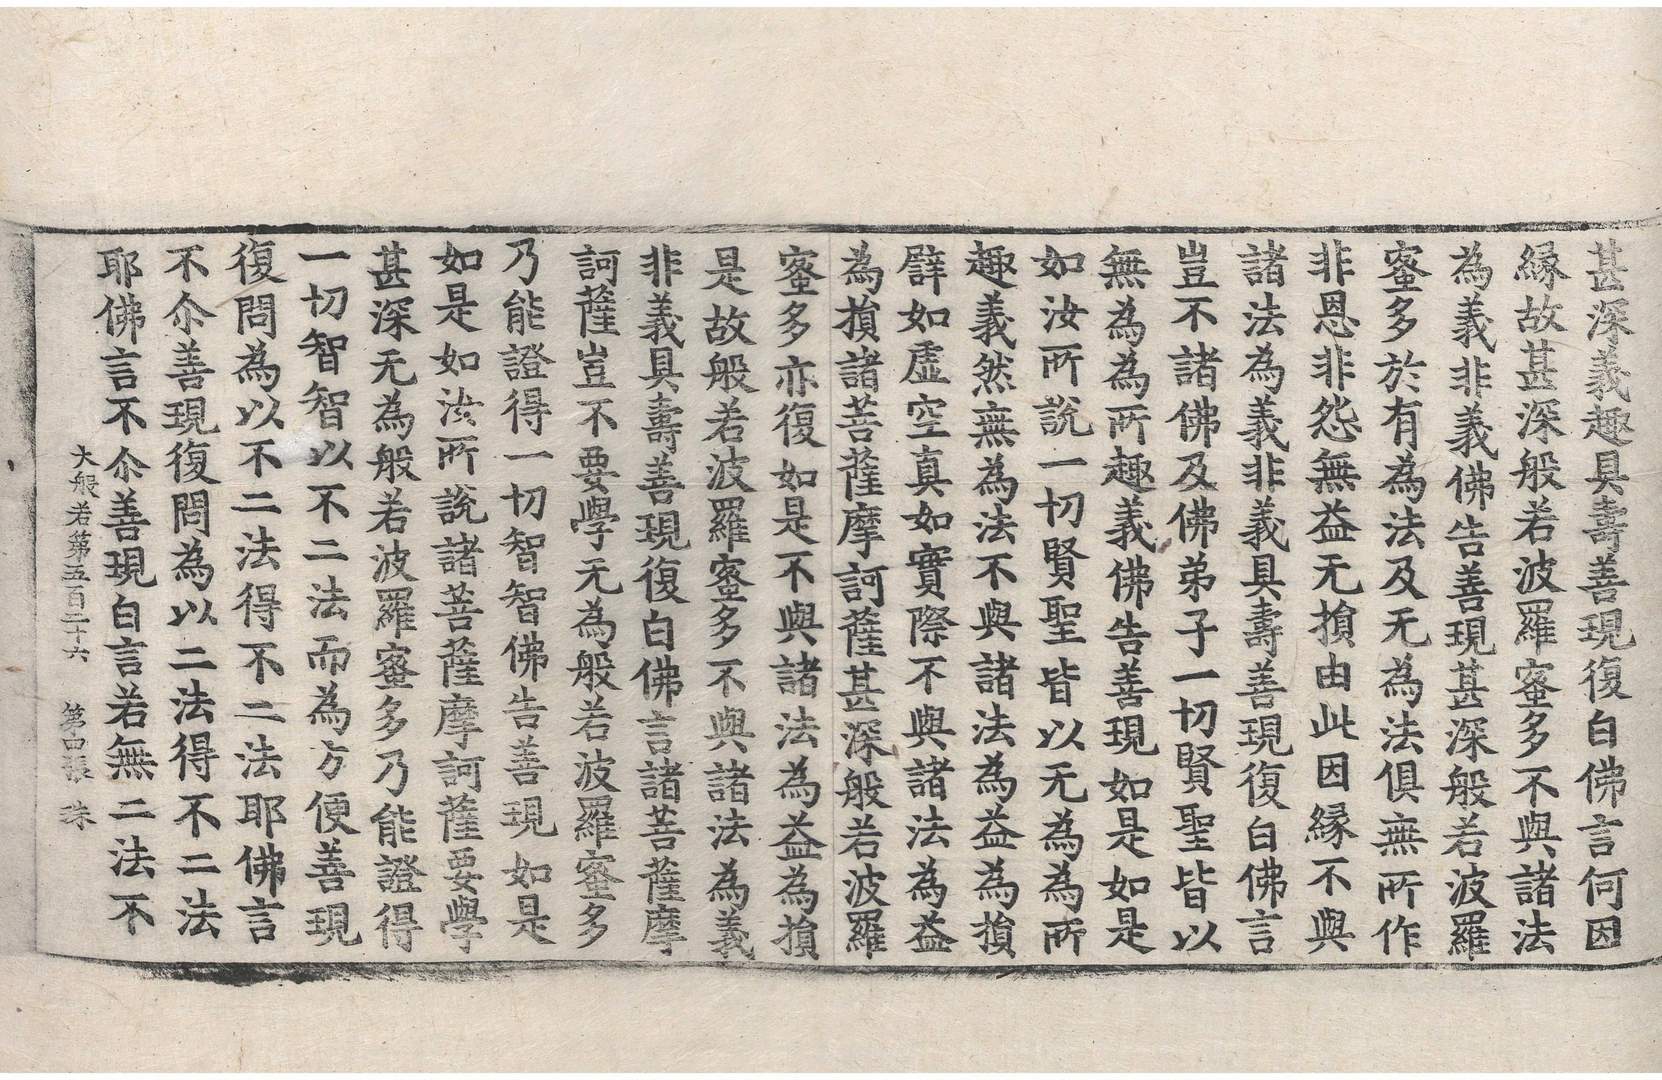 甚深義趣具壽善現復白佛言何因
縁故甚深般若波羅蜜多不與諸法
為義非義佛告善現甚深般若波羅
蜜多於有為法及无為法俱無所作
非恩非怨無益无損由此因縁不與
諸法為義非義具壽善現復白佛言
豈不諸佛及佛弟子一切賢聖皆以
無為為所趣義佛告善現如是如是
如汝所說一切賢聖皆以无為為所
趣義然無為法不與諸法為益為損
譬如虛空真如實際不與諸法為益
為損諸菩薩摩訶薩甚深般若波羅
蜜多亦復如是不與諸法為益為損
是故般若波羅蜜多不與諸法為義
非義具壽善現復白佛言諸菩薩摩
訶薩豈不要學无為般若波羅蜜多
乃能證得一切智智佛告善現如是
如是如汝所說諸菩薩摩訶薩要學
甚深无為般若波羅蜜多乃能證得
一切智智以不二法而為方便善現
復問為以不二法得不二法耶佛言
不尒善現復問為以二法得不二法
耶佛言不尒善現白言若無二法不
大般若第五百二十六 第四張 珠